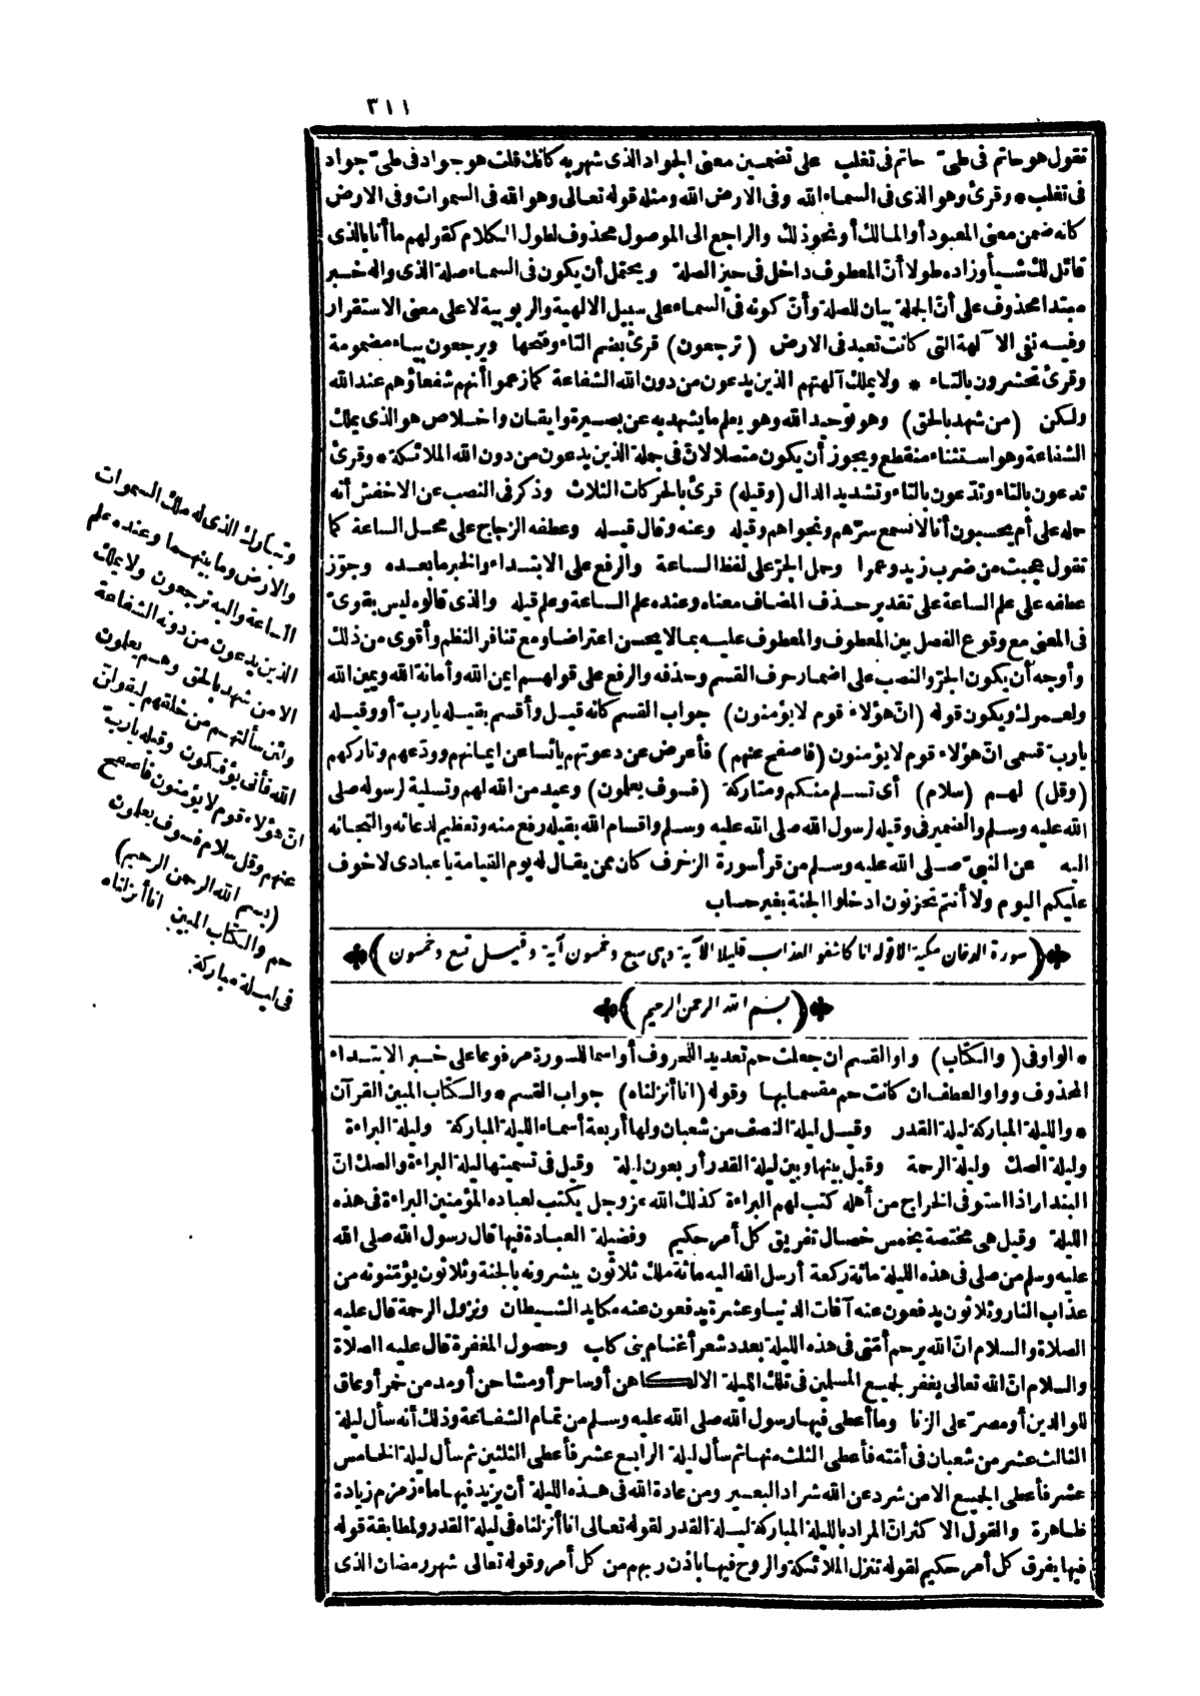 ٣١١
تقول هو حاتم فى طىّ حاتم فى تغلب على تضمين معنى الجواد الذى شهر به كانك قلت هو جواد فى طىّ جواد
فى تغلب * وقرئ وهو الذى فى السماء الله وفى الارض الله ومثله قوله تعالى وهو الله فى السموات وفى الارض
كانه ضمن معنى المعبود أو المالك أو نحو ذلك والراجع الى الموصول محذوف لطول الكلام كقولهم ما أنا بالذى
قائل لك شيأ وزاده طولا أنّ المعطوف داخل فى حيز الصلة ويحتمل أن يكون فى السماء صلة الذى واله خبر
مبتدا محذوف على أنّ الجملة بيان للصلة وأنّ كونه فى السماء على سبيل الالهية والربوبية لا على معنى الاستقرار
وفيه نفى الآلهة التى كانت تعبد فى الارض (ترجعون) قرئ بضم التاء وفتحها ويرجعون بياء مضمومة
وقرئ تحشرون بالتاء * ولا يملك آلهتهم الذين يدعون من دون الله الشفاعة كما زعموا أنهم شفعاؤهم عند الله
ولكن (من شهد بالحق) وهو توحيد الله وهو يعلم ما يشهد به عن بصيرة وايقان واخلاص هو الذى يملك
الشفاعة وهو استثناء منقطع ويجوز أن يكون متصلا لانّ فى جملة الذين يدعون من دون الله الملائكة * وقرئ
تدعون بالتاء وتدّعون بالتاء وتشديد الدال (وقيله) قرئ بالحركات الثلاث وذكر فى النصب عن الاخفش أنه
حمله على أم يحسبون أنا لا نسمع سرّهم ونجواهم وقيله وعنه وقال قيله وعطفه الزجاج على محل الساعة كما
تقول عجبت من ضرب زيد وعمرا وحمل الجرّ على لفظ الساعة والرفع على الابتداء والخبر ما بعده وجوّز
عطفه على علم الساعة على تقدير حذف المضاف معناه وعنده علم الساعة وعلم قيله والذى قالوه ليس بقوىّ
فى المعنى مع وقوع الفصل بين المعطوف والمعطوف عليه بما لا يحسن اعتراضا ومع تنافر النظم وأقوى من ذلك
وأوجه أن يكون الجرّ والنصب على اضمار حرف القسم وحذفه والرفع على قولهم ايمن الله وأمانة الله ويمين الله
ولعمرك ويكون قوله (انّ هؤلاء قوم لا يؤمنون) جواب القسم كانه قيل وأقسم بقيله يا ربّ أو وقيله
يا ربّ قسمى انّ هؤلاء قوم لا يؤمنون (فاصفح عنهم) فأعرض عن دعوتهم يائسا عن ايمانهم وودّعهم وتاركهم
(وقل) لهم (سلام) أى تسلم منكم ومتاركة (فسوف يعلمون) وعيد من الله لهم وتسلية لرسوله صلى
الله عليه وسلم والضمير فى وقيله لرسول الله صلى الله عليه وسلم واقسام الله بقيله رفع منه وتعظيم لدعائه والتجائه
اليه عن النبىّ صلى الله عليه وسلم من قرأ سورة الزخرف كان ممن يقال له يوم القيامة يا عبادى لا خوف
عليكم اليوم ولا أنتم تحزنون ادخلوا الجنة بغير حساب
(سورة الدخان مكية الا قوله انا كاشفو العذاب قليلا الآية وهى سبع وخمسون آية وقيل تسع وخمسون)
(بسم الله الرحمن الرحيم)
* الواو فى (والكتاب) واو القسم ان جعلت حم تعديد اللحروف أو اسما للسورة مرفوعا على خبر الابتداء
المحذوف وواو العطف ان كانت حم مقسما بها وقوله (انا أنزلناه) جواب القسم * والكتاب المبين القرآن
* والليلة المباركة ليلة القدر وقيل ليلة النصف من شعبان ولها أربعة أسماء الليلة المباركة وليلة البراءة
وليلة الصك وليلة الرحمة وقيل بينها وبين ليلة القدر أربعون ليلة وقيل فى تسميتها ليلة البراءة والصك انّ
البندار اذا استوفى الخراج من أهله كتب لهم البراءة كذلك الله عز وجل يكتب لعباده المؤمنين البراءة فى هذه
الليلة وقيل هى مختصة بخمس خصال تفريق كل أمر حكيم وفضيلة العبادة فيها قال رسول الله صلى الله
عليه وسلم من صلى فى هذه الليلة مائة ركعة أرسل الله اليه مائة ملك ثلاثون يبشرونه بالجنة وثلاثون يؤمنونه من
عذاب النار وثلاثون يدفعون عنه آفات الدنيا وعشرة يدفعون عنه مكايد الشيطان ونزول الرحمة قال عليه
الصلاة والسلام انّ الله يرحم أمّتى فى هذه الليلة بعدد شعر أغنام بنى كلب وحصول المغفرة قال عليه الصلاة
والسلام انّ الله تعالى يغفر لجميع المسلمين فى تلك الليلة الا لكاهن أو ساحر أو مشاحن أو مدمن خمر أو عاق
للوالدين أو مصرّ على الزنا وما أعطى فيها رسول الله صلى الله عليه وسلم من تمام الشفاعة وذلك أنه سأل ليلة
الثالث عشر من شعبان فى أمّته فأعطى الثلث منها ثم سأل ليلة الرابع عشر فأعطى الثلثين ثم سأل ليلة الخامس
عشر فأعطى الجميع الا من شرد عن الله شراد البعير ومن عادة الله فى هذه الليلة أن يزيد فيها ماء زمزم زيادة
ظاهرة والقول الاكثر انّ المراد بالليلة المباركة ليلة القدر لقوله تعالى انا أنزلناه فى ليلة القدر ولمطابقة قوله
فيها يفرق كل أمر حكيم لقوله تنزل الملائكة والروح فيها باذن ربهم من كل أمر وقوله تعالى شهر رمضان الذى
وتبارك الذى له ملك السموات
والارض وما بينهما وعنده علم
الساعة واليه ترجعون ولا يملك
الذين يدعون من دونه الشفاعة
الا من شهد بالحق وهم يعلمون
ولئن سألتهم من خلقهم ليقولنّ
الله فأنى يؤفكون وقيله يا ربّ
انّ هؤلاء قوم لا يؤمنون فاصفح
عنهم وقل سلام فسوف يعلمون
(بسم الله الرحمن الرحيم)
حم والكتاب المبين انا أنزلناه
فى ليلة مباركة